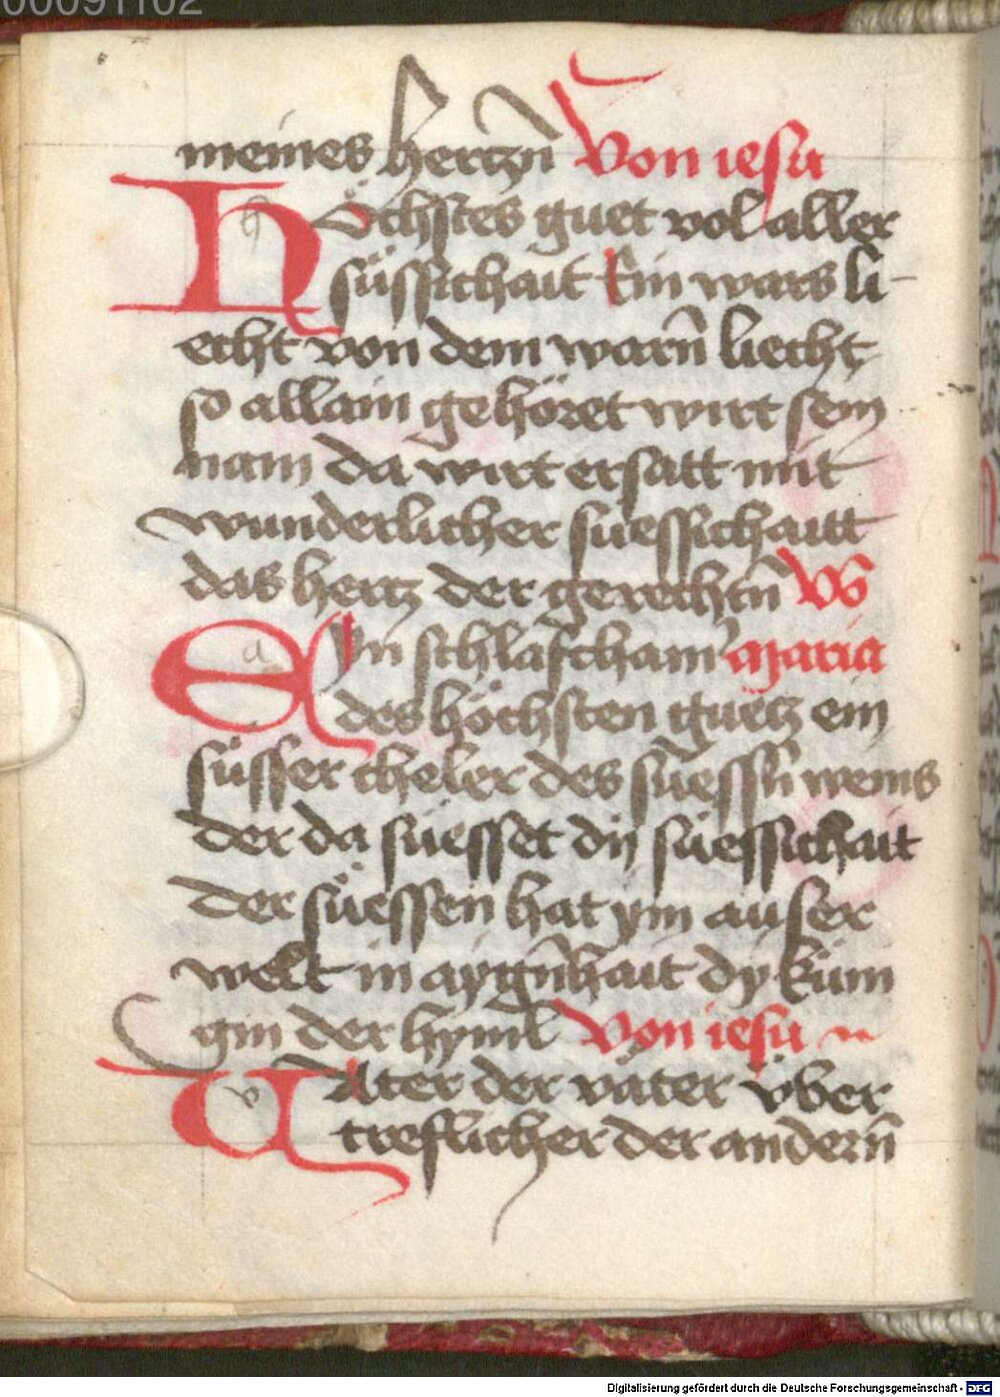 00091102
meines hertzn̄ Von iesu
Höchstes guet vol aller
süssichait Ein wars li-
echt von dem warn̄ liecht
so allain gehöret wirt sein
nam da wirt ersatt mit
wunderlicher suessichaitt
das hertz der gerechtn̄ Vō
Eyn schlafcham̄er maria
des höchsten guetz ein
süsser cheler des süessn̄ weins
der da süesset dij süessichait
der süessen hat ym auser
welt in aygn̄hait dy küni
gin der hyml̄ Von iesu
VAter der väter über
treflicher der andern̄
Digitalisierung gefördert durch die Deutsche Forschungsgemeinschaft - DFG